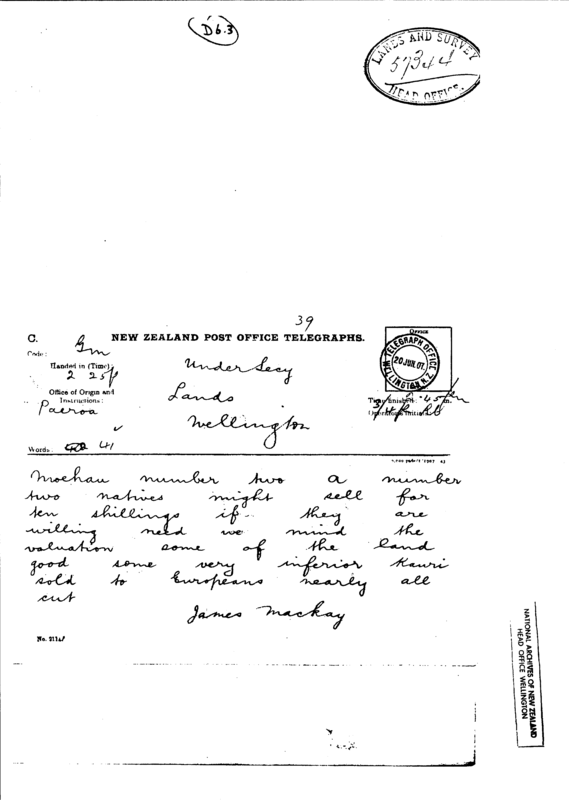 D6.3
LANDS AND SURVEY
57344
HEAD OFFICE.
39
C. NEW ZEALAND POST OFFICE TELEGRAPHS.
Code: Gm
Office
TELEGRAPH OFFICE
20 JUN. 07
WELLINGTON N.Z.
Handed in (Time)
2 25p
Office of Origin and
Instructions:
Paeroa
Under Secy
Lands
Wellington
Time finished:
Words: 41
Moehau number two a number
two natives might sell for
ten shillings if they are
willing need we mind the
valuation some of the land
good some very inferior Kauri
sold to Europeans nearly all
cut
James Mackay
NATIONAL ARCHIVES OF NEW ZEALAND
HEAD OFFICE WELLINGTON